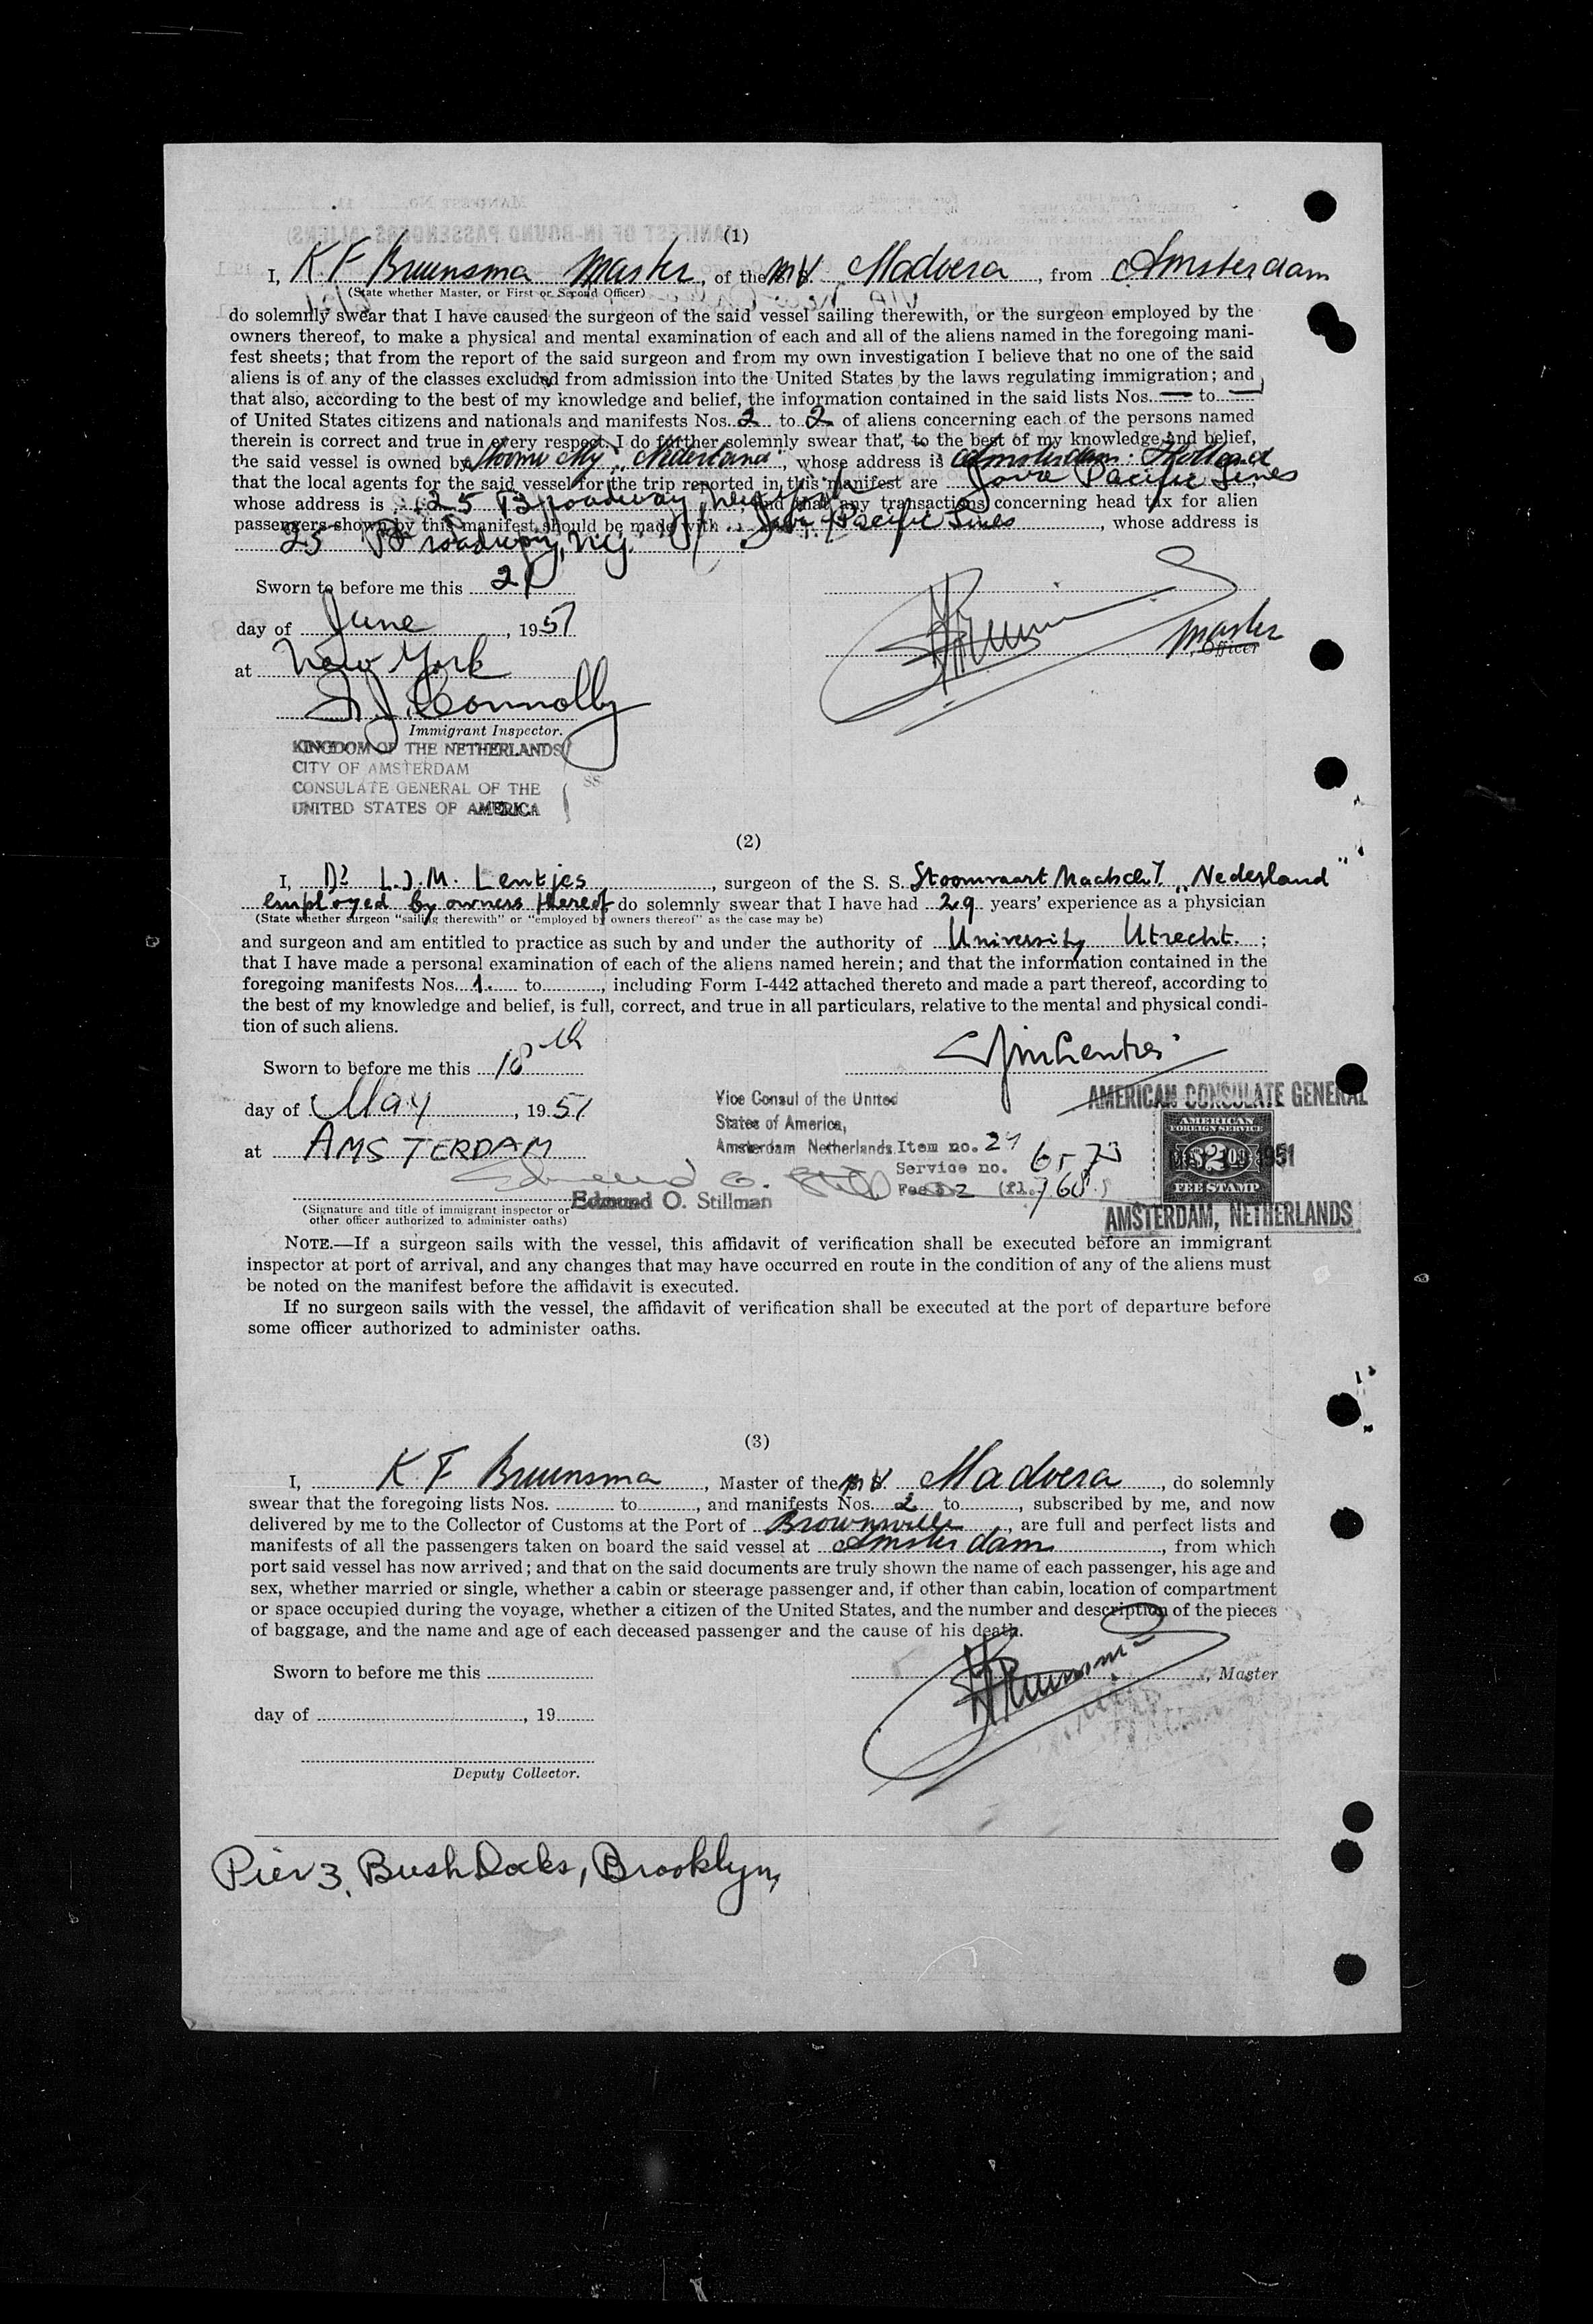 (1)
I, K. F Bruunsma Master, of the M.V. Madoera, from Amsterdam
(State whether Master, or First or Second Officer)
do solemnly swear that I have caused the surgeon of the said vessel sailing therewith, or the surgeon employed by the
owners thereof, to make a physical and mental examination of each and all of the aliens named in the foregoing mani-
fest sheets; that from the report of the said surgeon and from my own investigation I believe that no one of the said
aliens is of any of the classes excluded from admission into the United States by the laws regulating immigration; and
that also, according to the best of my knowledge and belief, the information contained in the said lists Nos. — to —
of United States citizens and nationals and manifests Nos. 2 to 2 of aliens concerning each of the persons named
therein is correct and true in every respect. I do further solemnly swear that, to the best of my knowledge and belief,
the said vessel is owned by Stoomv My. "Nederland", whose address is Amsterdam. Holland
that the local agents for the said vessel for the trip reported in this manifest are Java Pacific Lines
whose address is 25 Broadway, New York, and that any transactions concerning head tax for alien
passengers shown by this manifest should be made with Java Pacific Lines, whose address is
25 Broadway, N.Y.
Sworn to before me this 21
day of June, 1951
at New York
Master
Officer
J. Connolly
Immigrant Inspector.
KINGDOM OF THE NETHERLANDS
CITY OF AMSTERDAM
CONSULATE GENERAL OF THE
UNITED STATES OF AMERICA
SS
(2)
I, Dr L.J.M. Lentjes, surgeon of the S. S. Stoomvaart Maatsch. "Nederland"
employed by owners thereof do solemnly swear that I have had 29 years' experience as a physician
(State whether surgeon "sailing therewith" or "employed by owners thereof" as the case may be)
and surgeon and am entitled to practice as such by and under the authority of University Utrecht. ;
that I have made a personal examination of each of the aliens named herein; and that the information contained in the
foregoing manifests Nos. 1. to, including Form I-442 attached thereto and made a part thereof, according to
the best of my knowledge and belief, is full, correct, and true in all particulars, relative to the mental and physical condi-
tion of such aliens.
Sworn to before me this 18th
day of May, 1951
at AMSTERDAM
Vice Consul of the United
States of America,
Amsterdam Netherlands.
Item no. 27
Service no. 6573
Fee $ 2 (fl. 7.60)
AMERICAN CONSULATE GENERAL
AMERICAN
FOREIGN SERVICE
$2.00
1951
FEE STAMP
AMSTERDAM, NETHERLANDS
Edmund O. Stillman
(Signature and title of immigrant inspector or
other officer authorized to administer oaths)
NOTE.—If a surgeon sails with the vessel, this affidavit of verification shall be executed before an immigrant
inspector at port of arrival, and any changes that may have occurred en route in the condition of any of the aliens must
be noted on the manifest before the affidavit is executed.
If no surgeon sails with the vessel, the affidavit of verification shall be executed at the port of departure before
some officer authorized to administer oaths.
(3)
I, K. F Bruunsma, Master of the M.V. Madoera, do solemnly
swear that the foregoing lists Nos. to, and manifests Nos. 2 to, subscribed by me, and now
delivered by me to the Collector of Customs at the Port of Brownsville, are full and perfect lists and
manifests of all the passengers taken on board the said vessel at Amsterdam, from which
port said vessel has now arrived; and that on the said documents are truly shown the name of each passenger, his age and
sex, whether married or single, whether a cabin or steerage passenger and, if other than cabin, location of compartment
or space occupied during the voyage, whether a citizen of the United States, and the number and description of the pieces
of baggage, and the name and age of each deceased passenger and the cause of his death.
Sworn to before me this
, Master
day of, 19
Deputy Collector.
Pier 3, Bush Docks, Brooklyn,